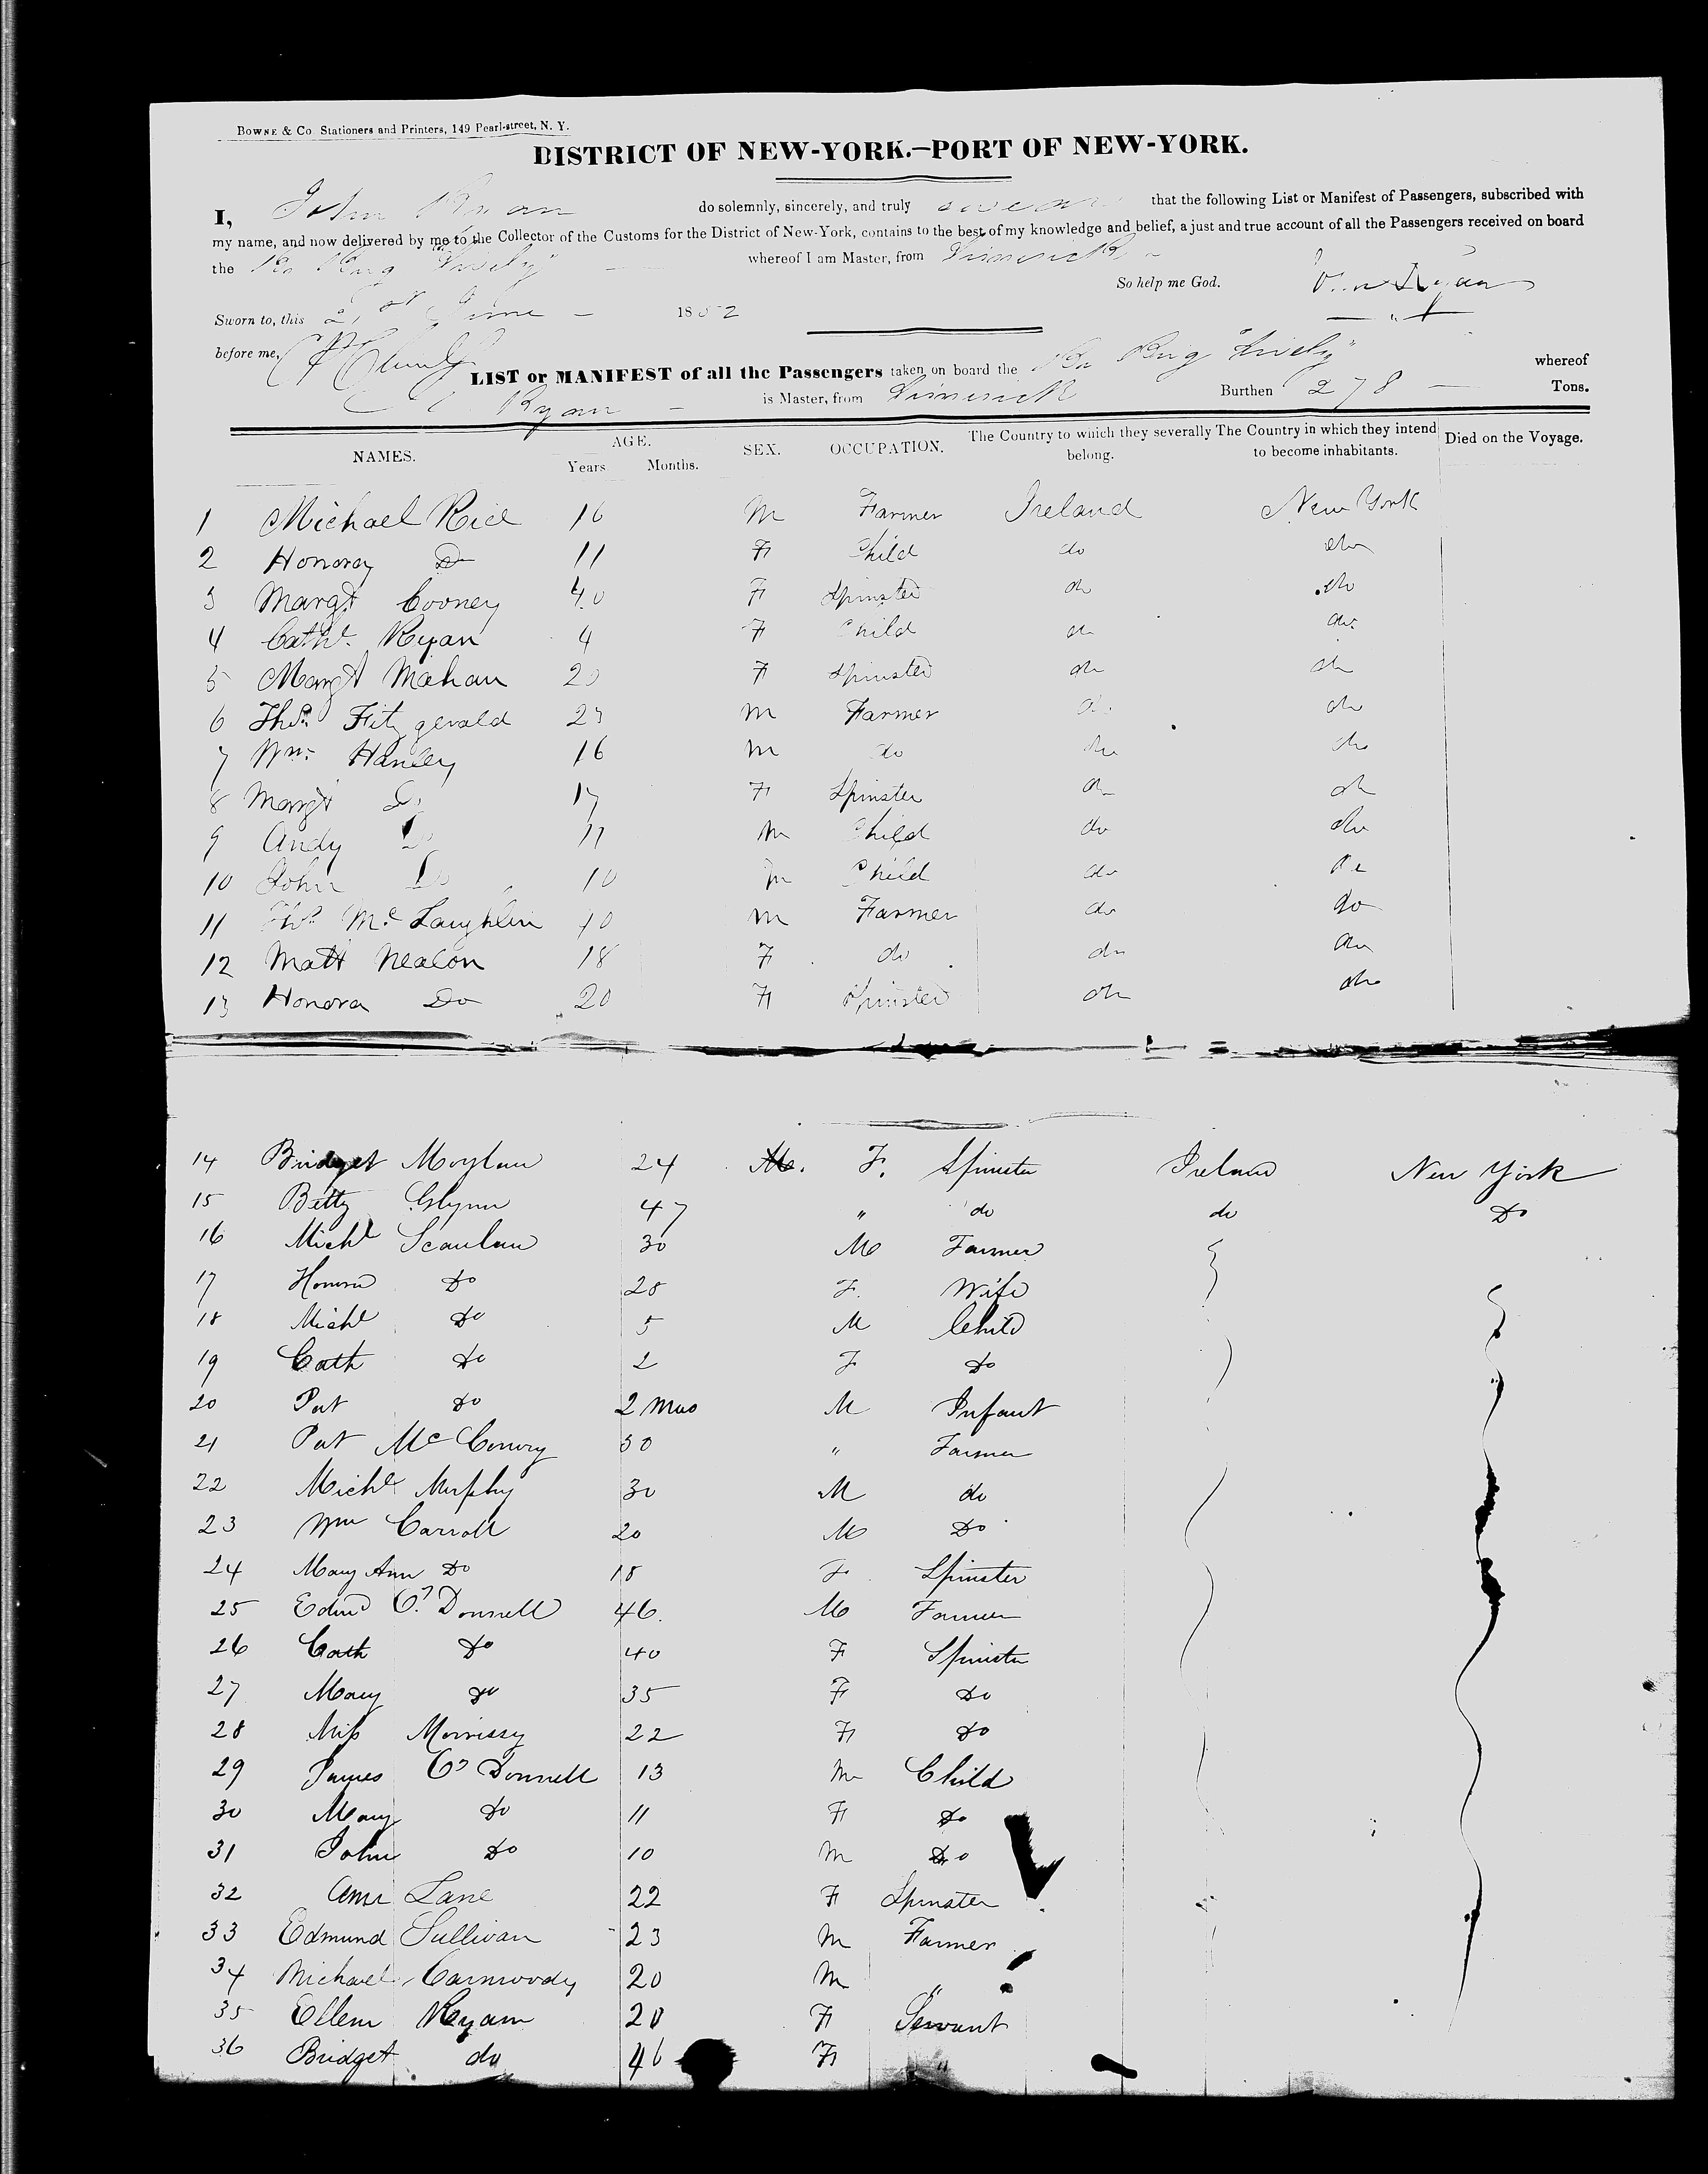 BOWNE & Co Stationers and Printers, 149 Pearl-street, N. Y.
DISTRICT OF NEW-YORK.—PORT OF NEW-YORK.
I, John Ryan do solemnly, sincerely, and truly swear that the following List or Manifest of Passengers, subscribed with
my name, and now delivered by me to the Collector of the Customs for the District of New-York, contains to the best of my knowledge and belief, a just and true account of all the Passengers received on board
the Br Brig "Lively" whereof I am Master, from Limerick
So help me God. Ryan
Sworn to, this 21st June 1852
before me,
LIST or MANIFEST of all the Passengers taken on board the Br Brig "Lively" whereof
Ryan is Master, from Limerick Burthen 278 Tons.
NAMES. AGE. Years Months. SEX. OCCUPATION. The Country to which they severally belong. The Country in which they intend to become inhabitants. Died on the Voyage.
1 Michael Rice 16 M Farmer Ireland New York
2 Honora Do 11 F Child do do
3 Margt Cooney 40 F Spinster do do
4 Cathe Ryan 4 F Child do do
5 Margt Mahan 20 F Spinster do do
6 Thos. Fitzgerald 23 M Farmer do do
7 Wm. Hanley 16 M do do do
8 Margt Do 17 F Spinster do do
9 Andy Do 11 M Child do do
10 John Do 10 M Child do do
11 Thos. McLaughlin 40 M Farmer do do
12 Matt Nealon 18 F do do do
13 Honora Do 20 F Spinster do do
14 Bridget Moylan 24 F. Spinster Ireland New York
15 Betty Glynn 47 " do do Do
16 Michl Scanlan 30 M Farmer
17 Honora Do 28 F. Wife
18 Michl Do 5 M Child
19 Cath Do 2 F Do
20 Pat Do 2 mos M Infant
21 Pat Mc 30 " Farmer
22 Michl Murphy 30 M do
23 Wm Carroll 20 M Do
24 Mary Ann Do 18 F Spinster
25 Edmd O'Donnell 46. M Farmer
26 Cath Do 40 F Spinster
27 Mary Do 35 F Do
28 Miss Morrissy 22 F Do
29 James O'Donnell 13 M Child
30 Mary Do 11 F Do
31 John Do 10 M Do
32 Ann Lane 22 F Spinster
33 Edmund Sullivan 23 M Farmer
34 Michael Carmoody 20 M "
35 Ellen Ryan 20 F Servant
36 Bridget do 46 F "